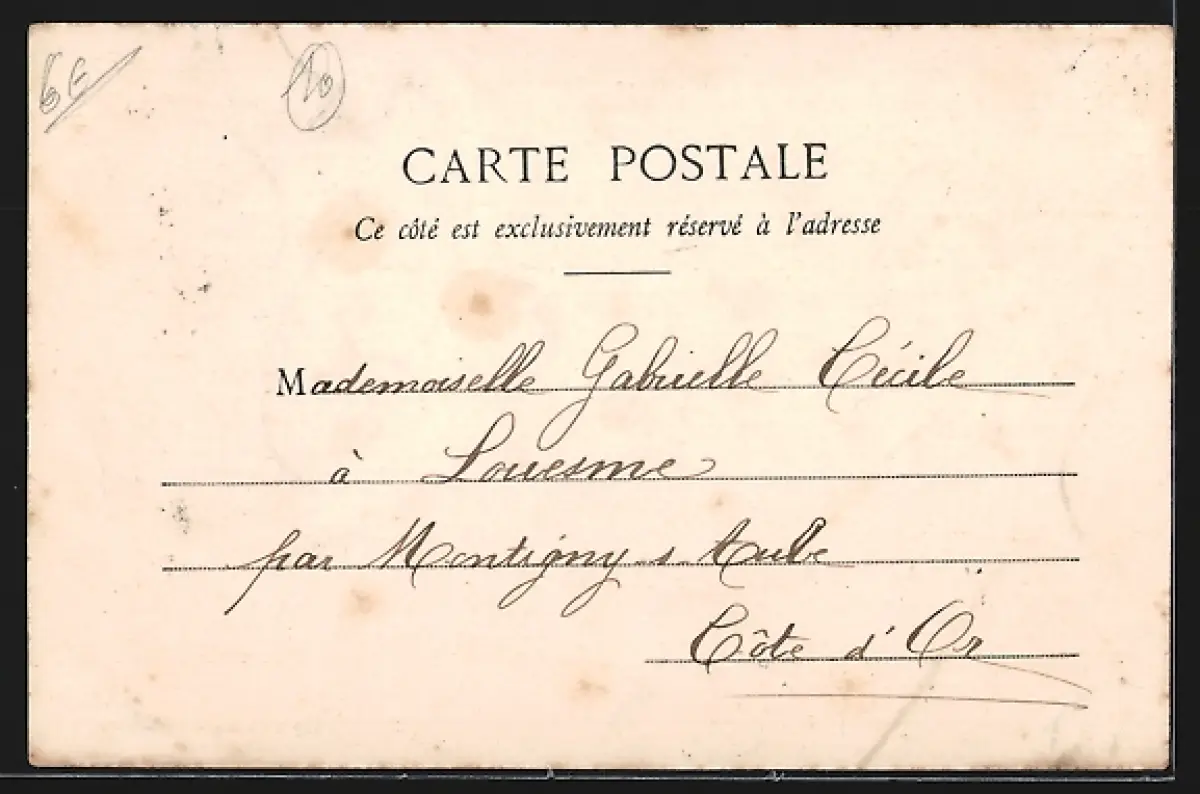 6€
10
CARTE POSTALE
Ce côté est exclusivement réservé à l'adresse
Mademoiselle Gabrielle Cécile
à Louesme
par Montigny s. Aube
Côte d'Or